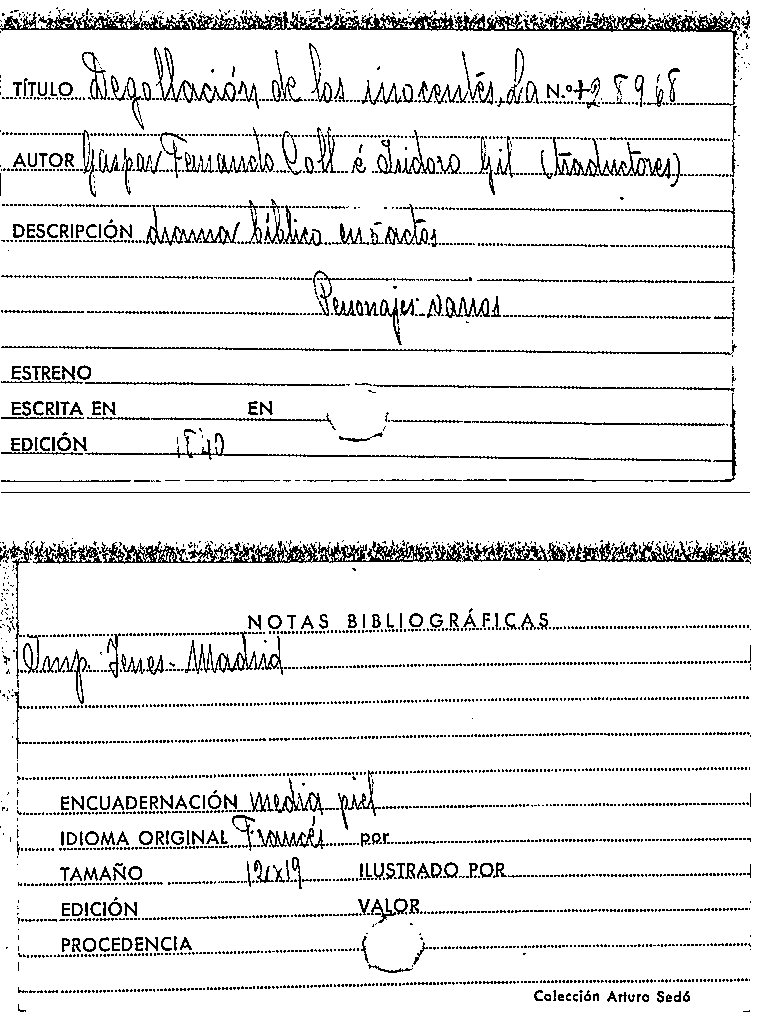 TÍTULO Degollación de los inocentes, La N.º + 28968
AUTOR Gaspar Fernando Coll é Isidoro Gil (traductores)
DESCRIPCIÓN drama bíblico en 5 actos
Personajes varios
ESTRENO
ESCRITA EN EN
EDICIÓN 1840
NOTAS BIBLIOGRÁFICAS
Imp. Yenes - Madrid
ENCUADERNACIÓN media piel
IDIOMA ORIGINAL Francés por
TAMAÑO 12x19 ILUSTRADO POR
EDICIÓN VALOR
PROCEDENCIA
Colección Arturo Sedó